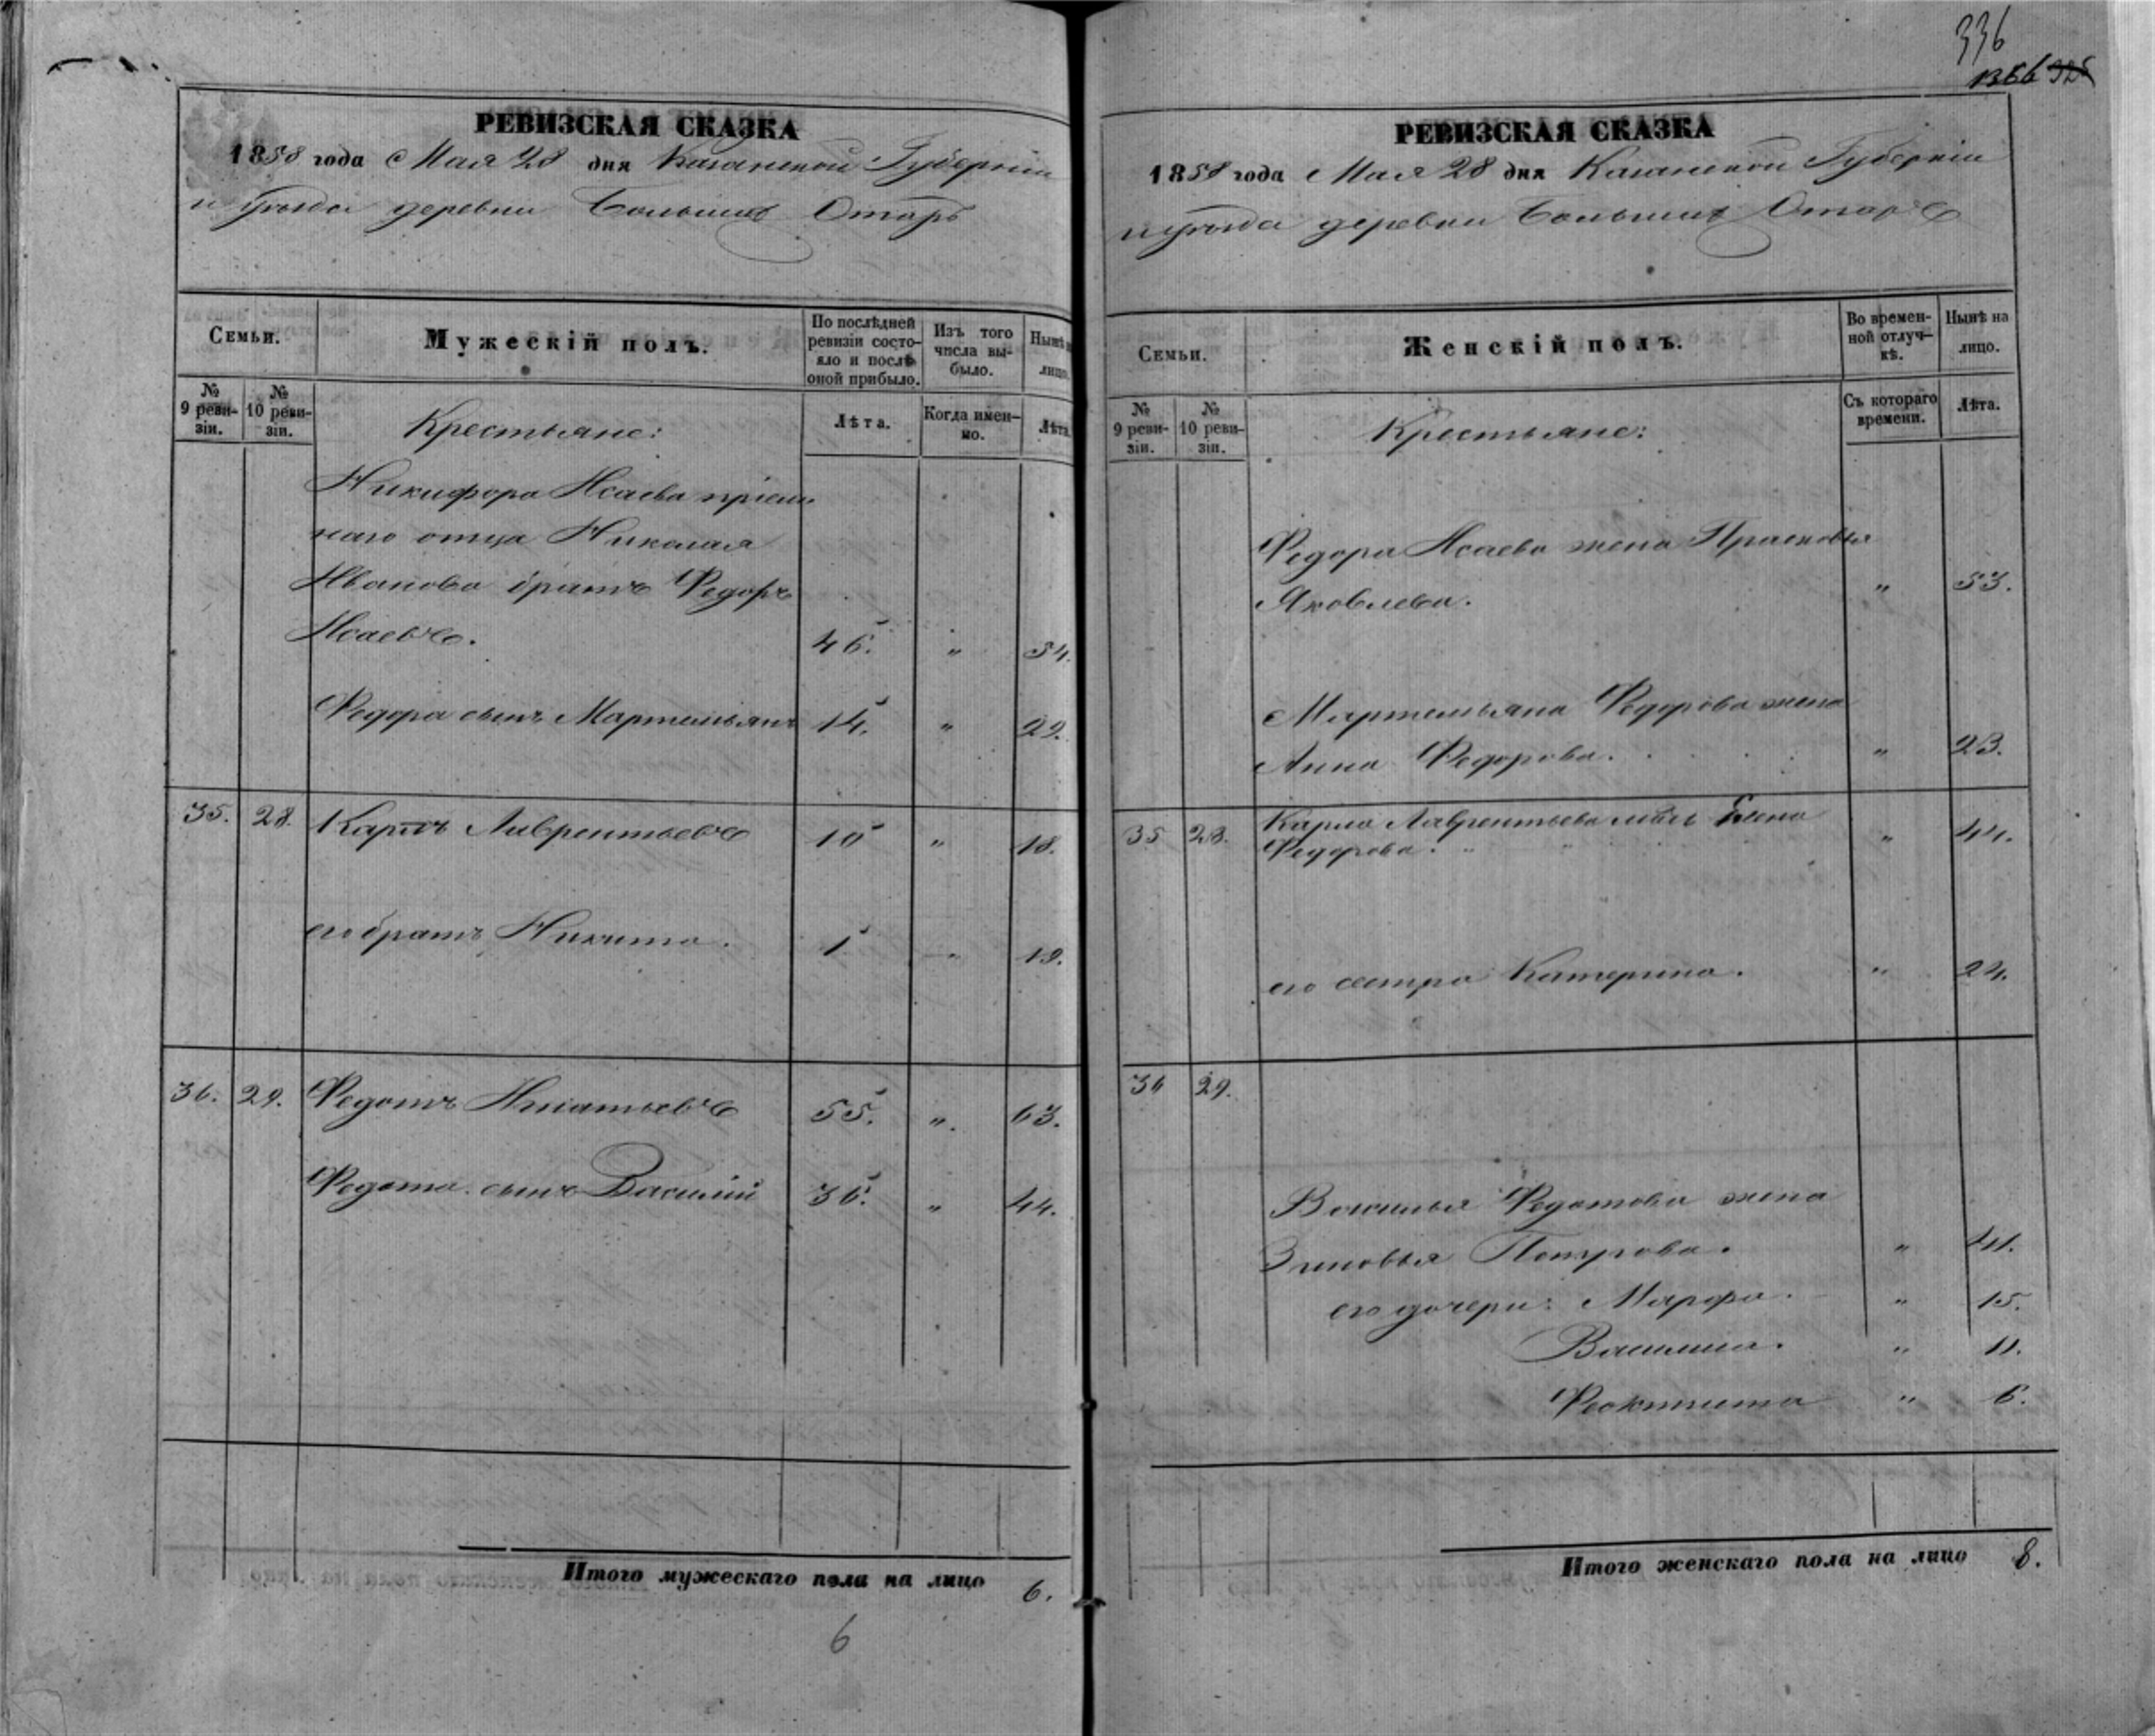 336
РЕВИЗСКАЯ СКАЗКА
1858 года Мая 28 дня Казанской Губерніи
и уѣзда деревни Большихъ Отаръ
Семьи.
Мужескій полъ.
По послѣдней ревизіи состояло и послѣ оной прибыло.
Изъ того числа выбыло.
Нынѣ на лицо.
№ 9 ревизіи.
№ 10 ревизіи.
Крестьяне:
Лѣта.
Когда именно.
Лѣта.
Никифора Исаева пріем-
наго отца Николая
Иванова братъ Федоръ
Исаевъ. 46. " 54.
Федора сынъ Мартемьянъ 14. " 22.
35. 28. Карпъ Лаврентьевъ 10 " 18.
его братъ Никита. 1 "
36. 29. Федотъ Игнатьевъ 55. " 63.
Федота сынъ Василій 36. " 44.
Итого мужескаго пола на лицо 6.
6
РЕВИЗСКАЯ СКАЗКА
1858 года Мая 28 дня Казанской Губерніи
и уѣзда деревни Большихъ Отаръ
Семьи.
Женскій полъ.
Во временной отлучкѣ.
Нынѣ на лицо.
№ 9 ревизіи.
№ 10 ревизіи.
Крестьяне:
Съ котораго времени.
Лѣта.
Федора Исаева жена Прасковья
Яковлева. " 53.
Мартемьяна Федорова жена
Анна Федорова. " 23.
35 28. Карпа Лаврентьева мать Елена
Федорова. " 44.
его сестра Катерина. " 24.
36 29.
Василья Федотова жена
Зиновья Петрова. " 41.
его дочери: Марфа. " 15.
Василиса. " 11.
Феоктиста " 6.
Итого женскаго пола на лицо 8.